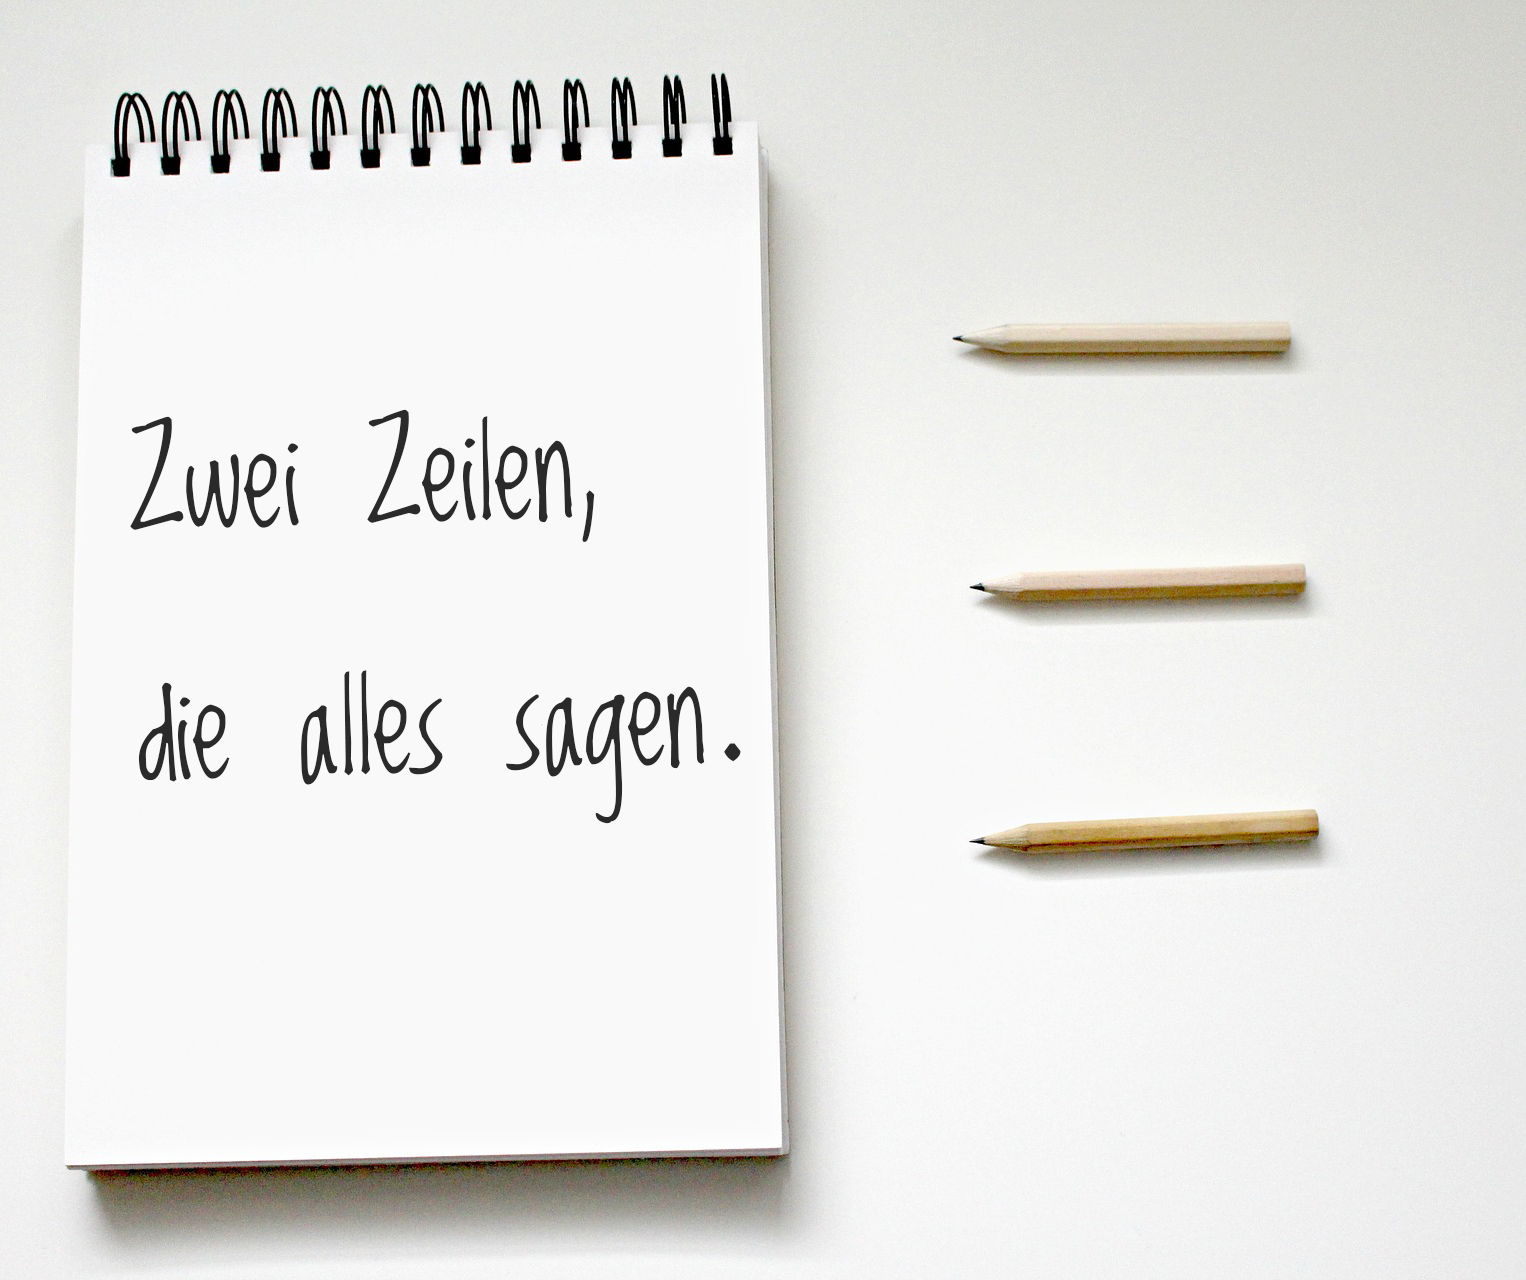 Zwei Zeilen,
die alles sagen.